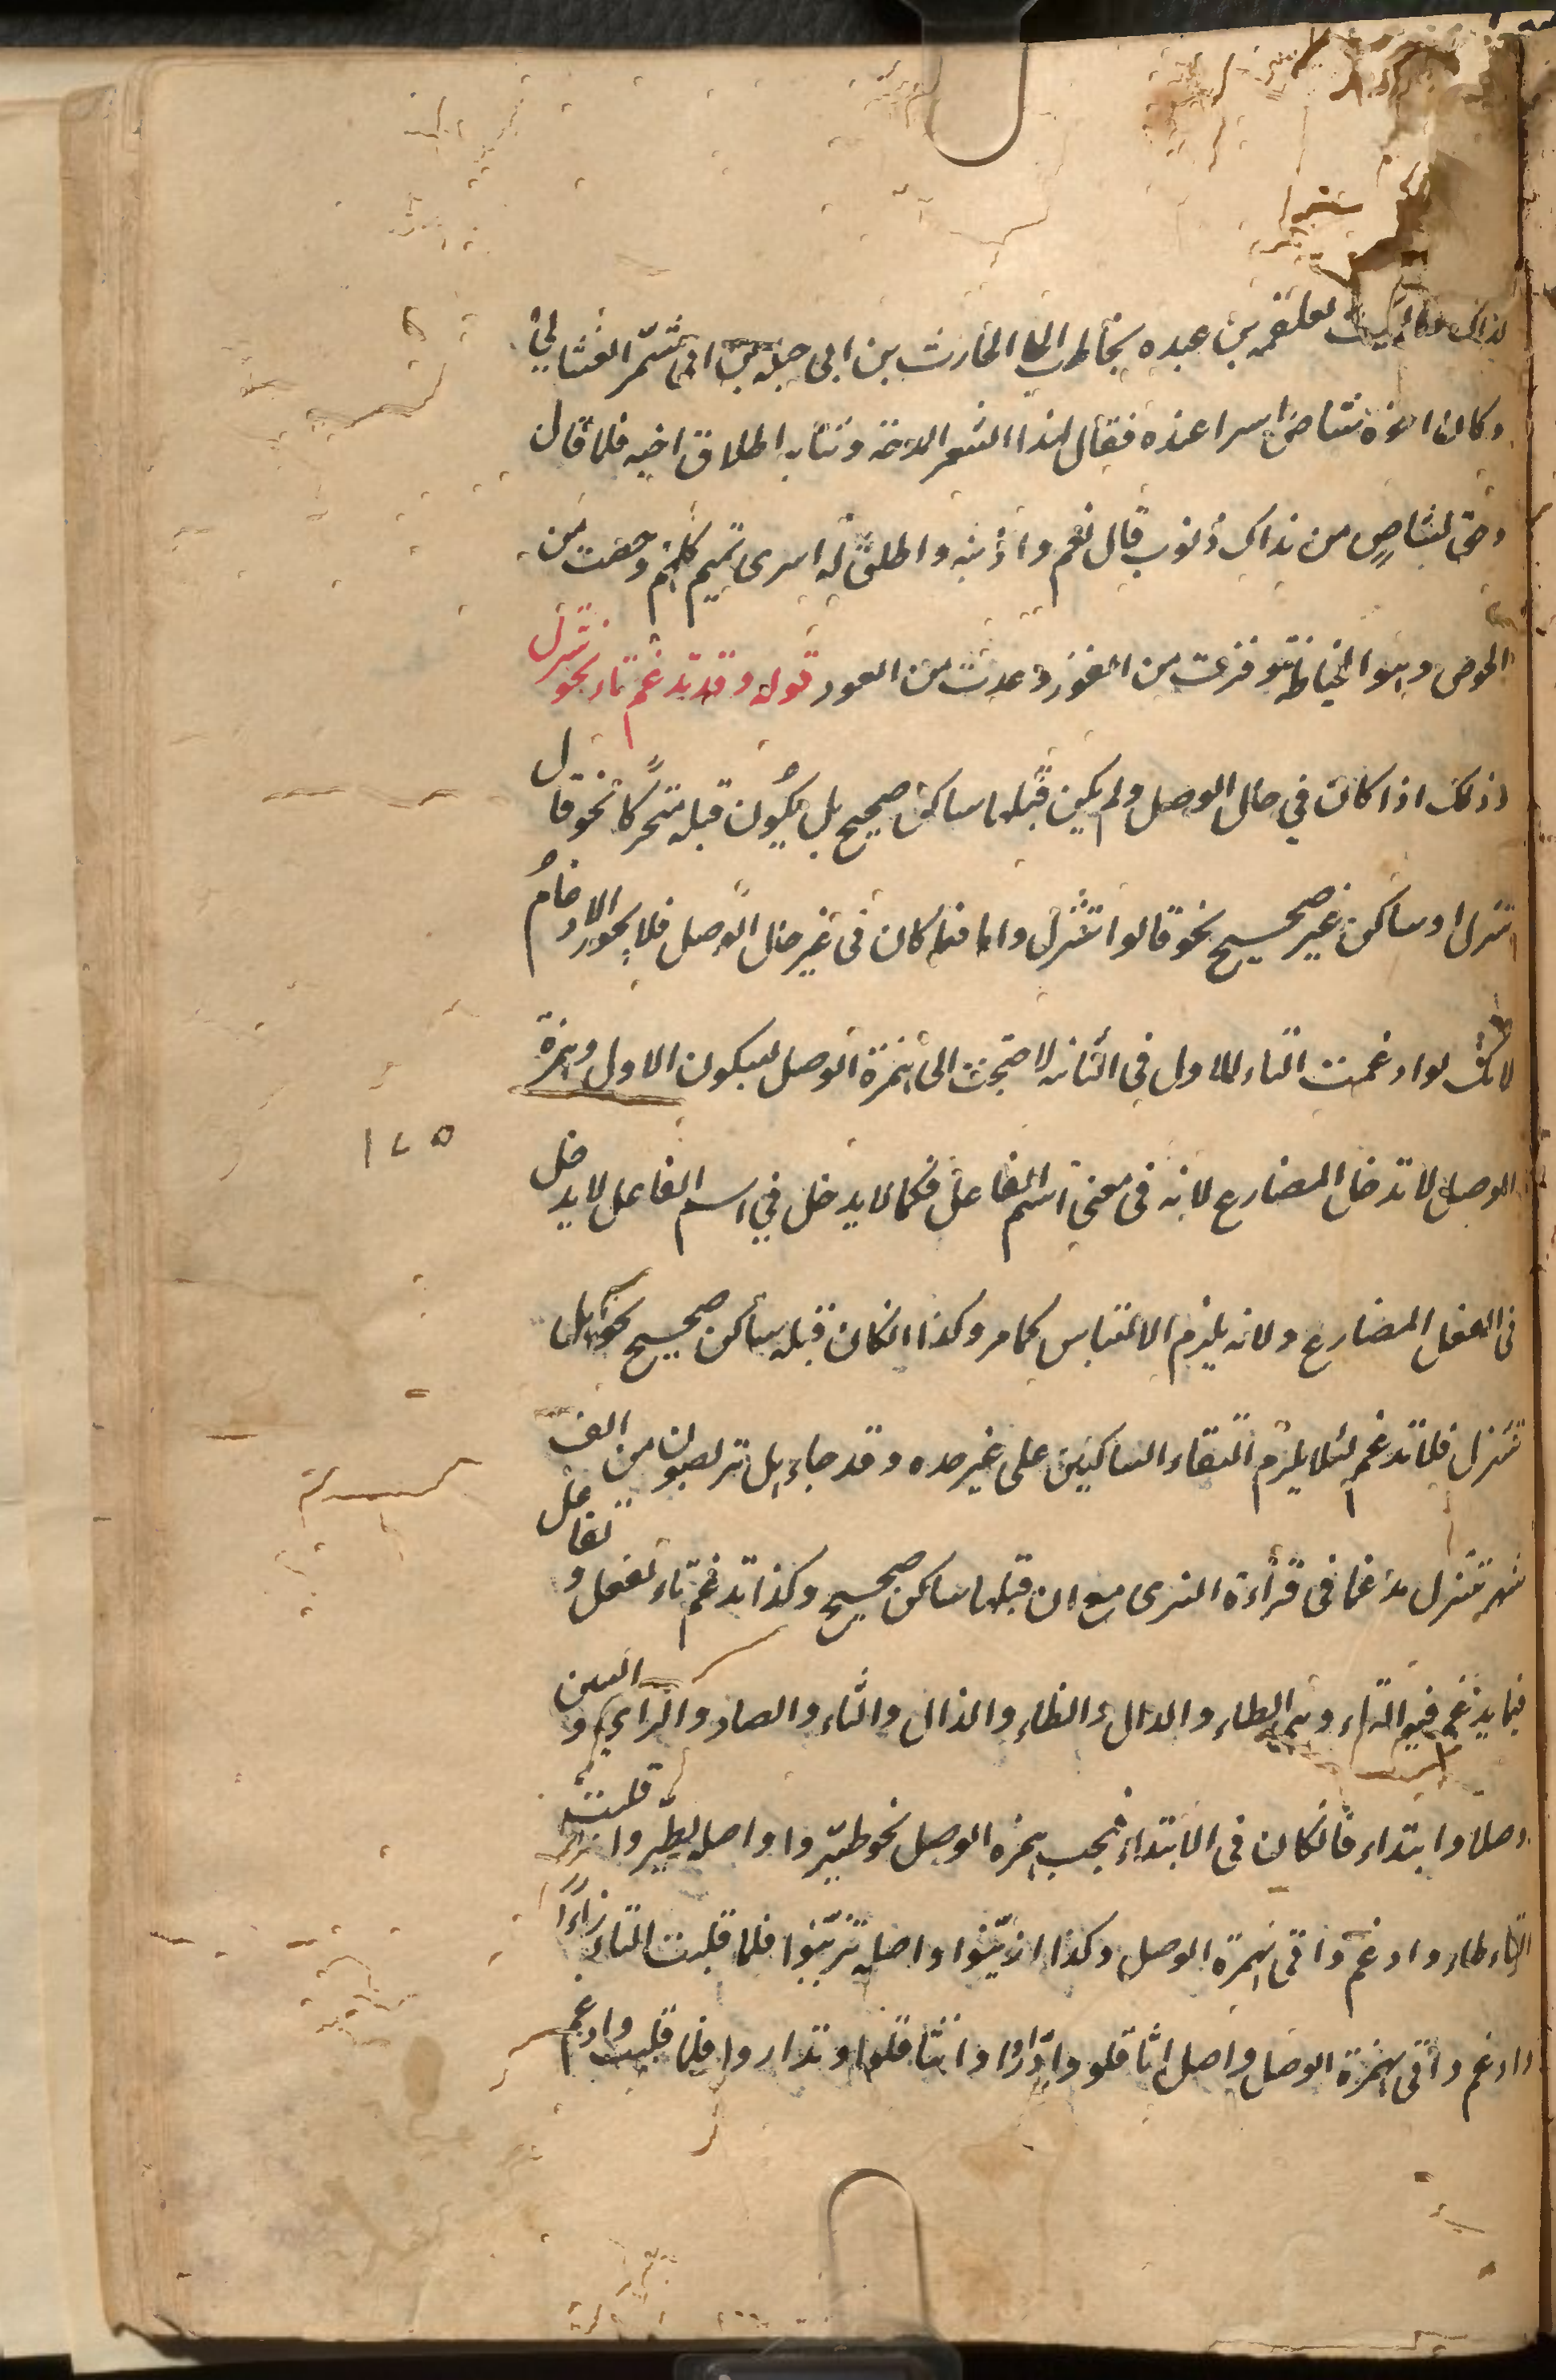 نداك البيت لعلقمه بن عبده يخاطب الحارث بن ابى جبله بن ابى شمّر الغسّانيّ
وكان اخوه شاص اسرا عنده فقال هذا الشعر المدحة وشانه اطلاق اخيه فلما قال
وحق لشاص من نداك ذنوب قال نعم واذنبه واطلق له اسرى تميم كلهم وحصت من
الحوص وهو الخياطة وفزت من الفوز وعدت من العود قوله وقد تدغم تاء نحو تنزل
وذلك اذا كان في حال الوصل ولم يكن قبلها ساكن صحيح بل يكون قبله متحركا نحو قال
تنزل او ساكن غير صحيح نحو قالوا تنزل واما فيما كان في غير حال الوصل فلا يجوز الادغام
لانك لو ادغمت التاء الاول في الثانيه لاحتجت الى همزة الوصل لسكون الاول وهمزة
الوصل لا تدخل المضارع لانه في معنى اسم الفاعل فكما لا يدخل في اسم الفاعل لا يدخل
١٢٥
فى الفعل المضارع ولانه يلزم الالتباس كما مر وكذا ان كان قبله ساكن صحيح نحو هل
تنزل فلا تدغم لئلا يلزم التقاء الساكنين على غير حده وقد جاء هل تربصون من الف
شهر تنزل مدغما فى قراءة البزى مع ان قبلها ساكن صحيح وكذا تدغم تاء تفعل وتفاعل
فيما يدغم فيه التاء وهى الطاء والدال والظاء والذال والثاء والصاد والزاي والسين
وصلا وابتداء فان كان في الابتداء فيجب همزه الوصل نحو اطيّروا واصله تطيّروا قلبت
التاء طاء وادغم واتى همزة الوصل وكذا ازيّنوا واصله تزيّنوا فلما قلبت التاء زاءًا
وادغم واتى همزة الوصل واصل اثاقلو وادّاروا تثاقلوا وتداروا فلما قلبت وادغم